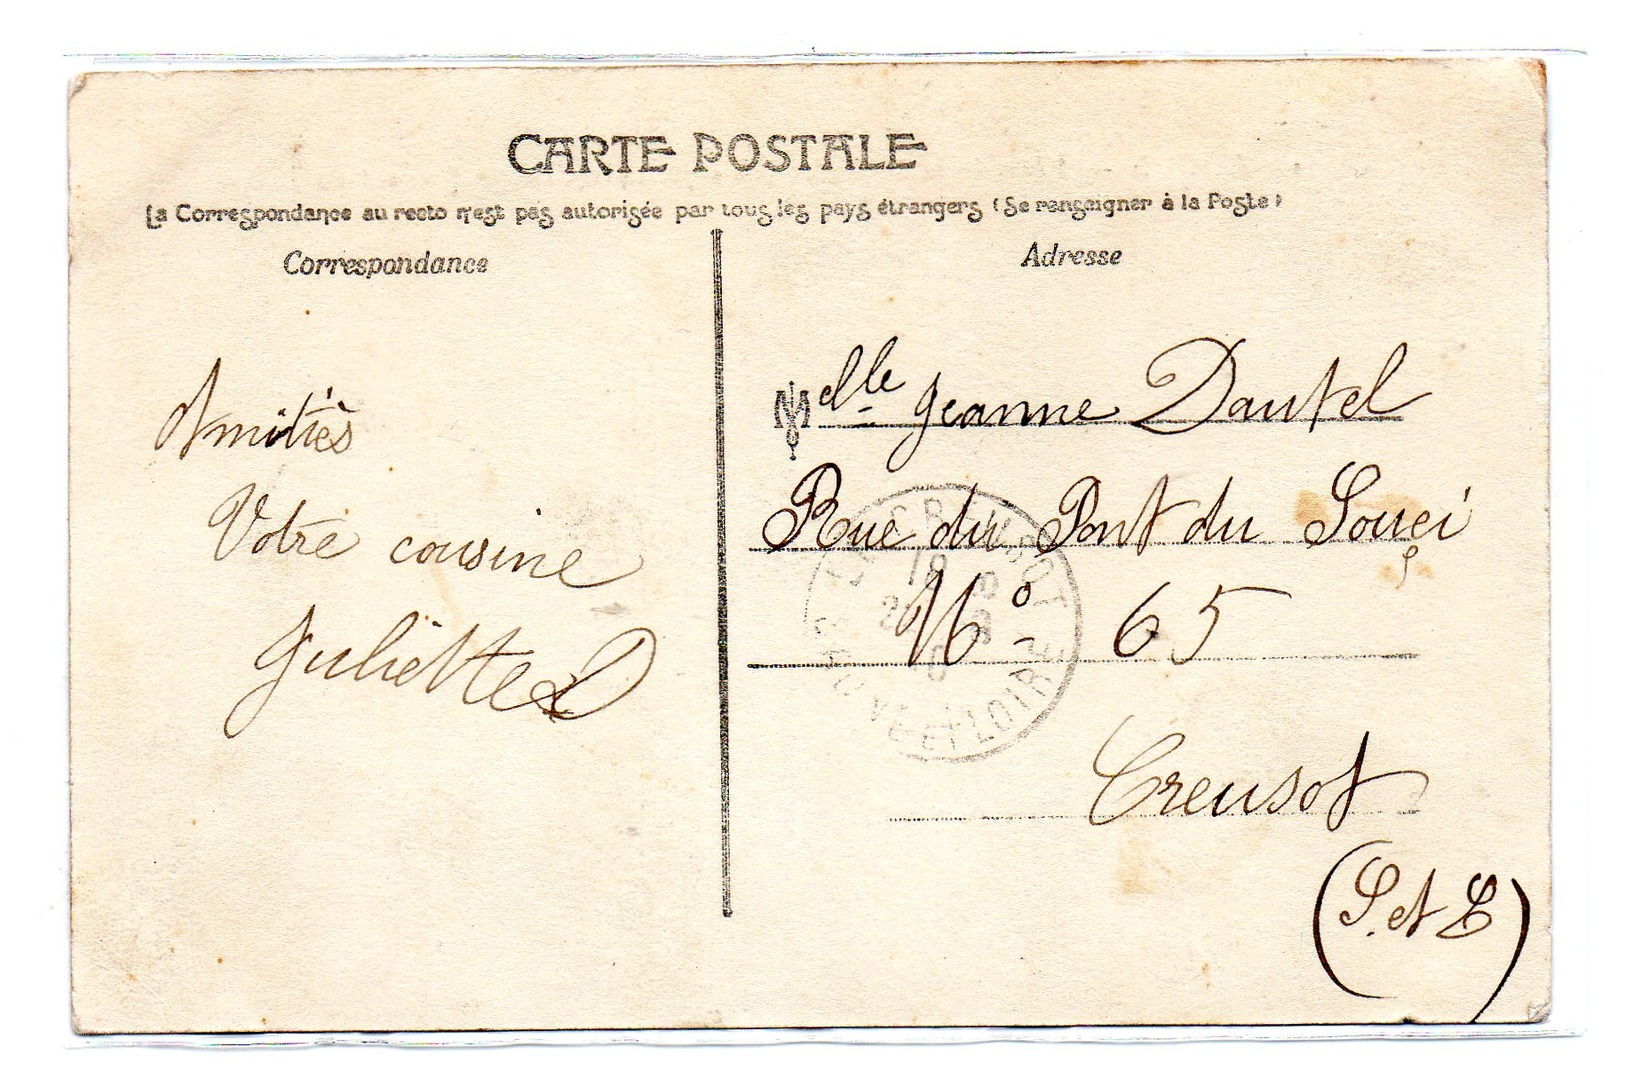 CARTE POSTALE
La Correspondance au recto n'est pas autorisée par tous les pays étrangers (Se renseigner à la Poste)
Correspondance
Adresse
Amitiés
Votre cousine
Juliette D
Melle Jeanne Dautel
Rue du Pont du Souci
No 65
Creusot
(S. et L)
LE CREUSOT
SAONE-ET-LOIRE